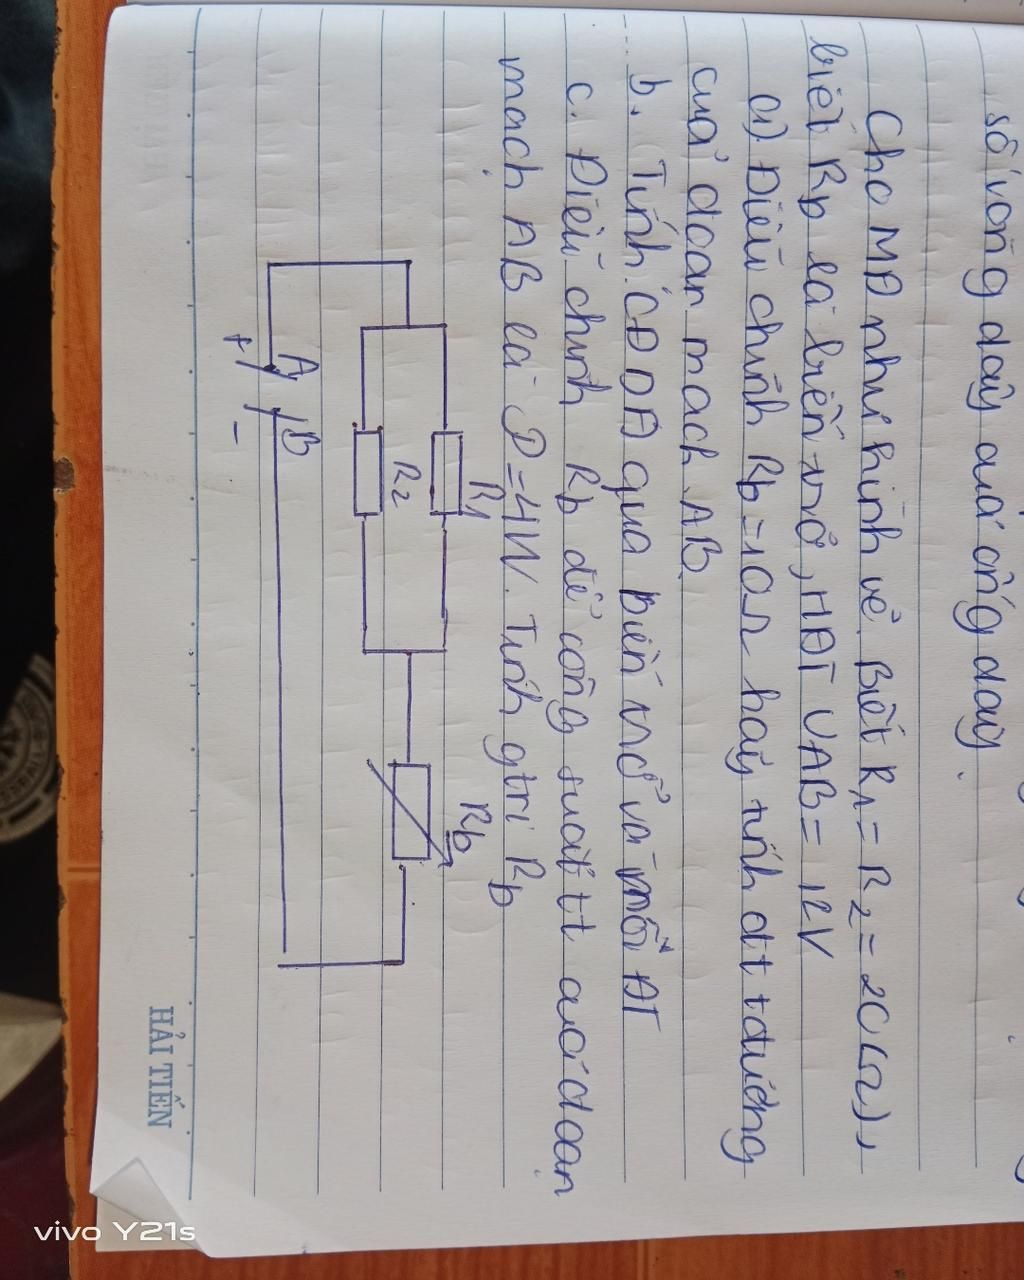 số vòng dây quá ống dây.
Cho MĐ như hình vẽ. Biết R1 = R2 = 20 (Ω),
biết Rb là biến trở, HĐT UAB = 12V
a) Điều chỉnh Rb = 10Ω hãy tính đt tđương
cuả đoạn mạch AB.
b. Tính CĐDĐ qua biến trở và mỗi ĐT
c. Điều chỉnh Rb để công suất tt auả đoạn
mạch AB là P = 4W. Tính gtrị Rb
R1
R2
Rb
A B
+ -
HẢI TIẾN
vivo Y21s